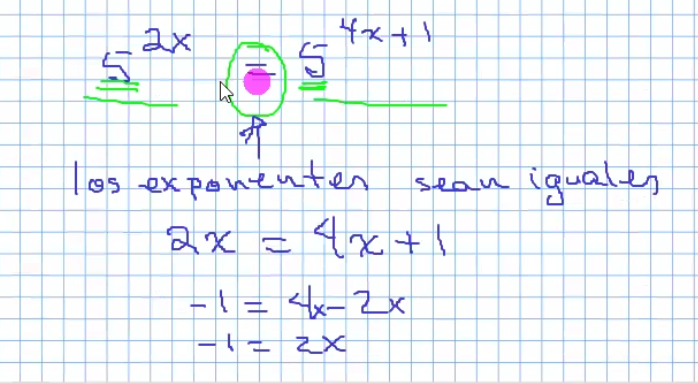 5^{2x} = 5^{4x+1}
los exponentes sean iguales
2x = 4x+1
-1 = 4x-2x
-1 = 2x